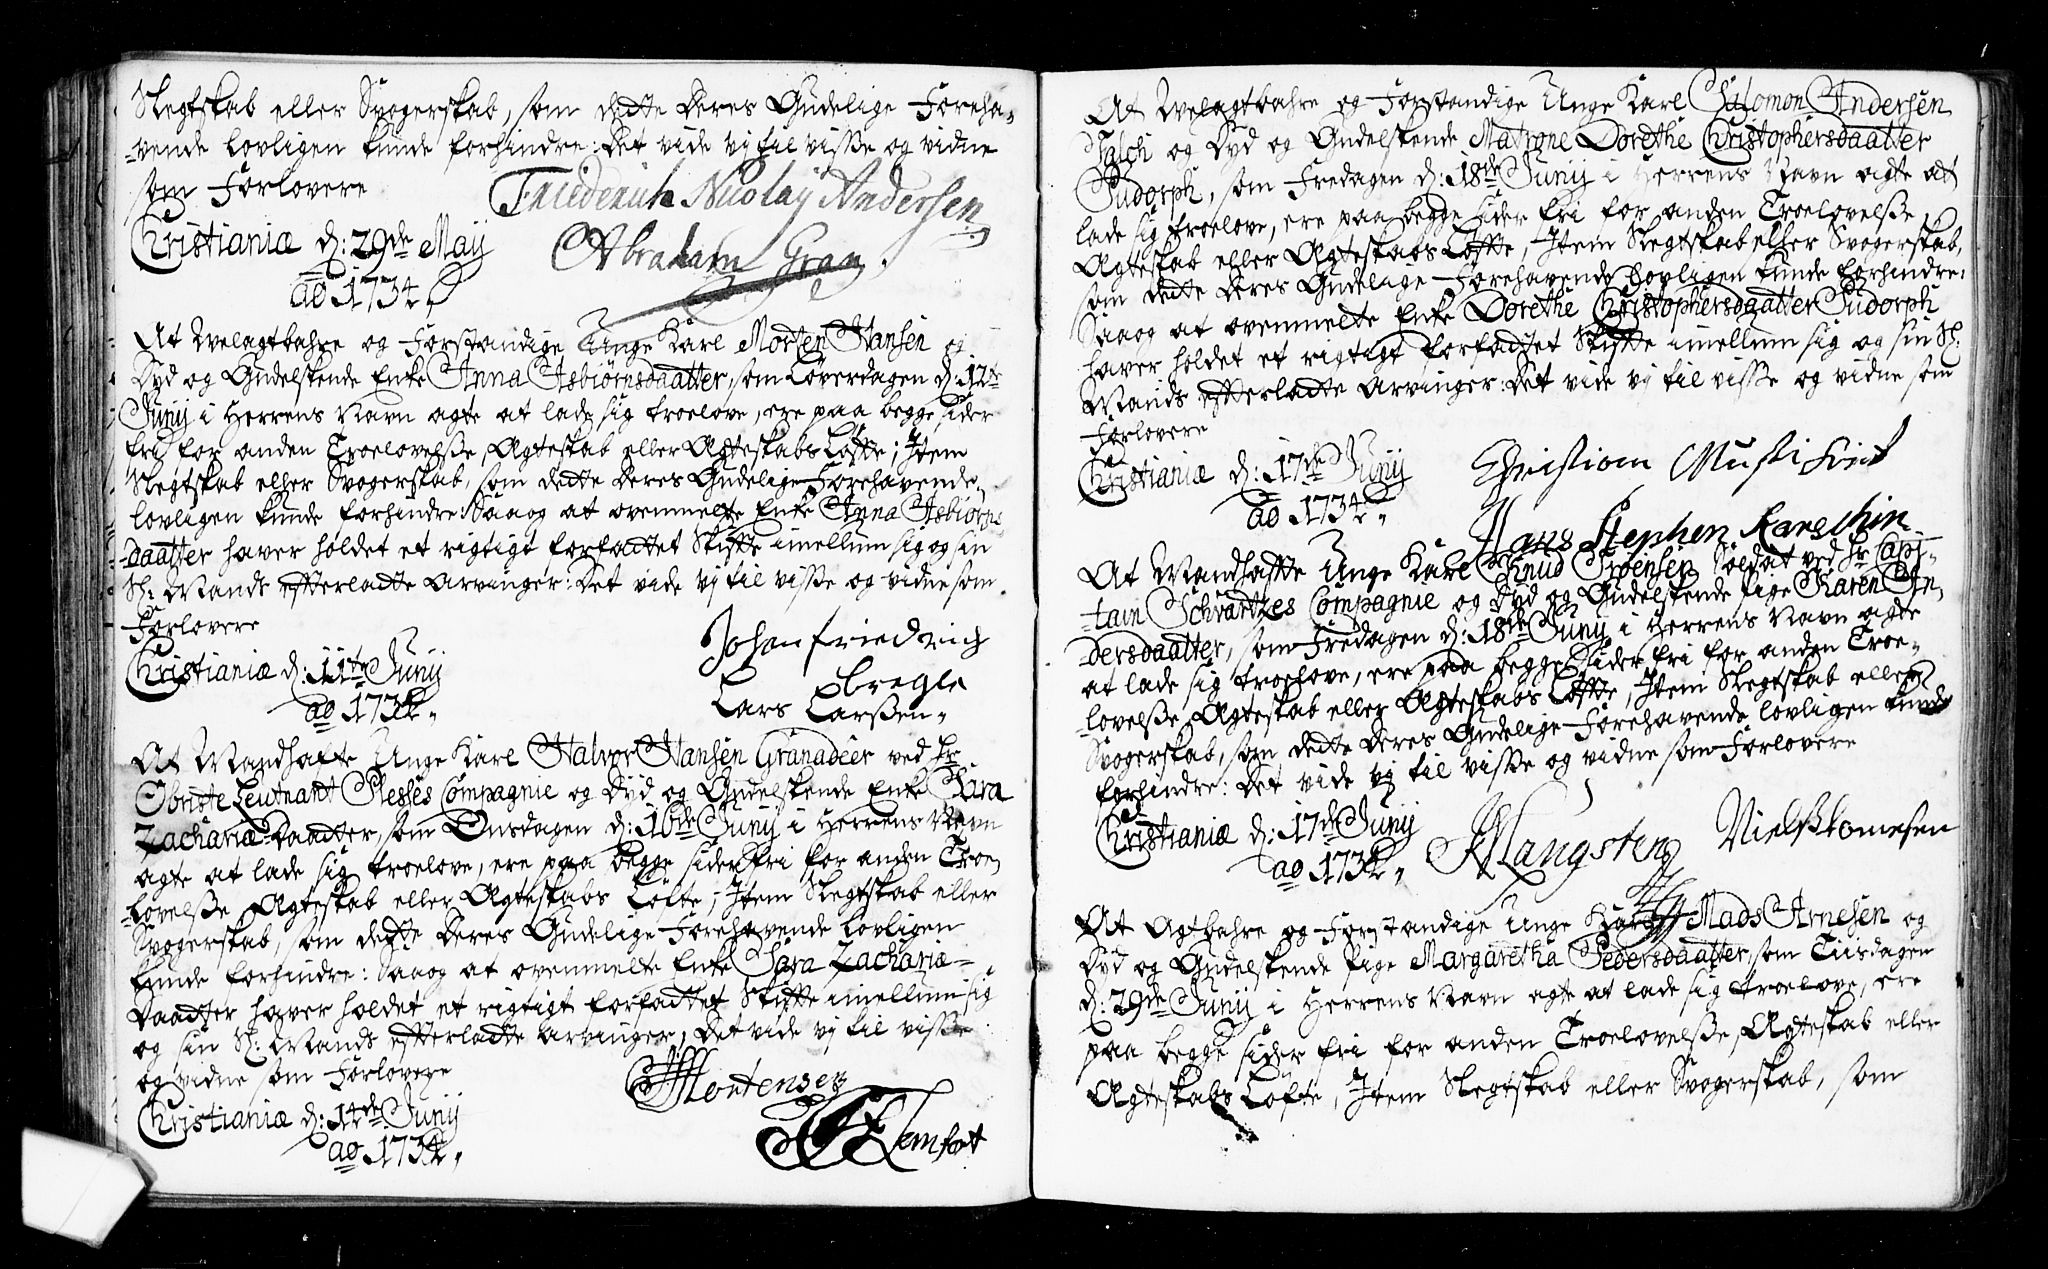 Slegtskab eller Svogerskab, som dette deres Gudelige Foreha-
-vende lovligen kunde forhindre: Det vide vj til visse og vidne
som Forlovere
Friederich Nicolaij Andersen
Christianiæ d: 29de Maij
Abraham Gran
ao 1734.
At Welagtbahre og Forstandige Unge Karl Morten Hansen og
Dyd og Gudelskende Enke Anna Asbiörnsdaatter, som Löverdagen d: 12te
Junij i Herrens Navn agte at lade sig troelove, ere paa begge sider
fri for anden Troelovelsse, Ægteskab eller Ægteskabs Löfte; Item
Slegtskab eller Svogerskab, som dette deres Gudelige Forehavende
lovligen kunde forhindre: Saa og at ovenmelte Enke Anna Asbiörns
-daatter haver holdet et rigtigt forfattet Skifte imellum sig og sin
Sl: Mands efterladte Arvinger: Det vide vj til visse og vidne som
Forlovere
Johan friedrich
Christianiæ d: 11te Junij
ao 1734.
Lars Larssen
At Mandhafte Unge Karl Halvor Hansen Granadeer ved Hr
Obriste Leutnant Plesses Compagnie og Dyd og Gudelskende Enke Sara
Zachariæ-Daatter, som Onsdagen d: 16de Junij i Herrens Navn
agte at lade sig troelove, ere paa begge sider fri for anden Troe-
-lovelsse, Ægteskab eller Ægteskabs Löfte, Item Slegtskab eller
Svogerskab, som dette deres Gudelige Forehavende lovligen
kunde forhindre: Saa og at ovenmelte Enke Sara Zachariæ-
Daatter haver holdet et rigtigt forfattet Skifte imellum sig
og sin Sl: Mands efterladte Arvinger, Det vide vj til visse
og vidne som Forlovere
Mortensen
Christianiæ d: 14de Junij
ao 1734.
At Welagtbahre og Forstandige Unge Karl Salomon Andersen
Falch og Dyd og Gudelskende Matrone Dorethe Christophersdaatter
Pudorph, som Fredagen d: 18de Junij i Herrens Navn agte at
lade sig troelove, ere paa begge sider fri for anden Troelovelsse,
Ægteskab eller Ægteskabs Löfte, Item Slegtskab eller Svogerskab,
som dette deres Gudelige Forehavende lovligen kunde forhindre:
Saa og at ovenmelte Enke Dorethe Christophersdaatter Pudorph
haver holdet et rigtigt forfattet Skifte imellum sig og sin Sl:
Mands efterladte Arvinger: Det vide vj til visse og vidne som
Forlovere
Christianiæ d: 17de Junij
Christian
ao 1734.
Hans Stephen
At Mandhafte Unge Karl Knud Troensen Soldat ved Hr Capi-
-tain Schvartzes Compagnie og Dyd og Gudelskende Pige Karen An-
-dersdaatter, som Fredagen d: 18de Junij i Herrens Navn agte
at lade sig troelove, ere paa begge Sider fri for anden Troe-
-lovelsse, Ægteskab eller Ægteskabs Löfte, Item Slegtskab eller
Svogerskab, som dette deres Gudelige Forehavende lovligen kunde
forhindre: Det vide vj til visse og vidne som Forlovere
Christianiæ d: 17de Junij
ao 1734.
At Agtbahre og Forstandige Unge Karl Mads Arnesen og
Dyd og Gudelskende Pige Margaretha Pedersdaatter, som Tiisdagen
d: 29de Junij i Herrens Navn agte at lade sig troelove, ere
paa begge sider fri for anden Troelovelsse, Ægteskab eller
Ægteskabs Löfte, Item Slegtskab eller Svogerskab, som